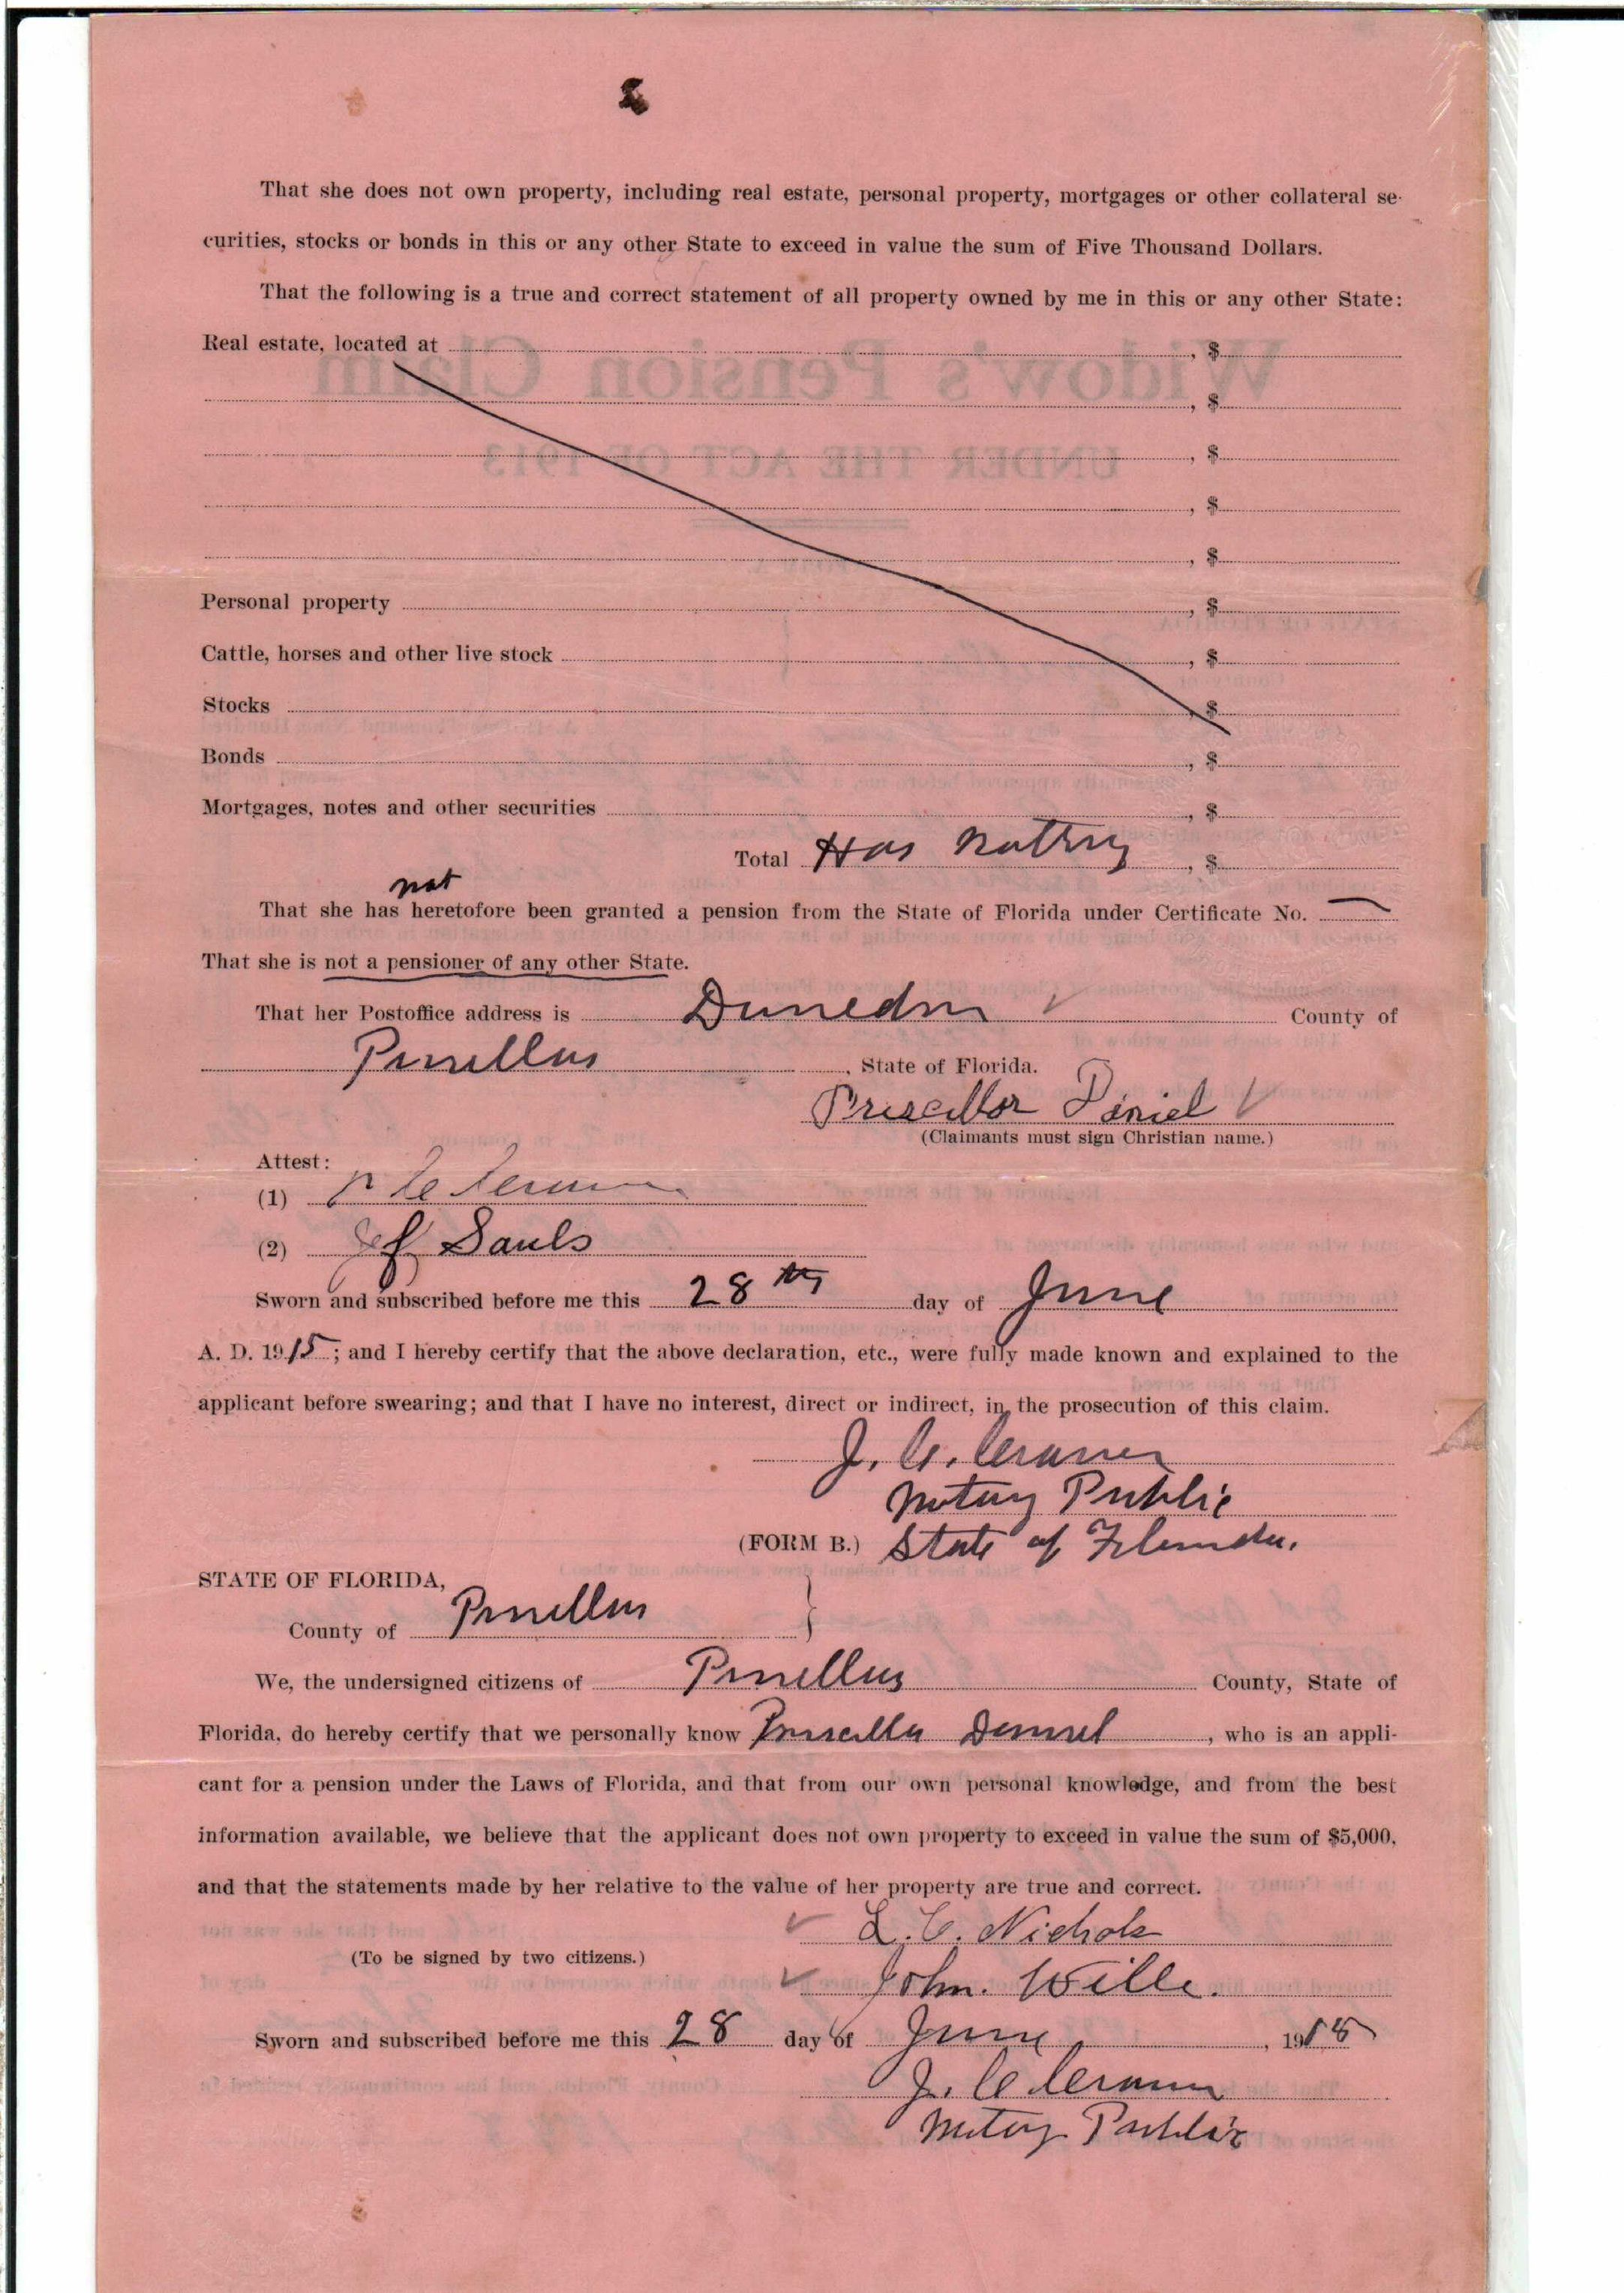 That she does not own property, including real estate, personal property, mortgages or other collateral se-
curities, stocks or bonds in this or any other State to exceed in value the sum of Five Thousand Dollars.
That the following is a true and correct statement of all property owned by me in this or any other State:
Real estate, located at , $
, $
, $
, $
, $
Personal property , $
Cattle, horses and other live stock , $
Stocks , $
Bonds , $
Mortgages, notes and other securities , $
Total Has nothing , $
not
That she has heretofore been granted a pension from the State of Florida under Certificate No. —
That she is not a pensioner of any other State.
That her Postoffice address is Dunedin County of
Pinellas , State of Florida.
Priscillar Daniel
(Claimants must sign Christian name.)
Attest:
(1)
(2) Sauls
Sworn and subscribed before me this 28th day of June
A. D. 1915; and I hereby certify that the above declaration, etc., were fully made known and explained to the
applicant before swearing; and that I have no interest, direct or indirect, in the prosecution of this claim.
J. C.
Notary Public
(FORM B.) State of Florida.
STATE OF FLORIDA,
County of Pinellas }
We, the undersigned citizens of Pinellas County, State of
Florida, do hereby certify that we personally know Priscilla Daniel , who is an appli-
cant for a pension under the Laws of Florida, and that from our own personal knowledge, and from the best
information available, we believe that the applicant does not own property to exceed in value the sum of $5,000,
and that the statements made by her relative to the value of her property are true and correct.
L. C. Nichols
(To be signed by two citizens.)
John. Wille.
Sworn and subscribed before me this 28 day of June , 1915
J. C.
Notary Public